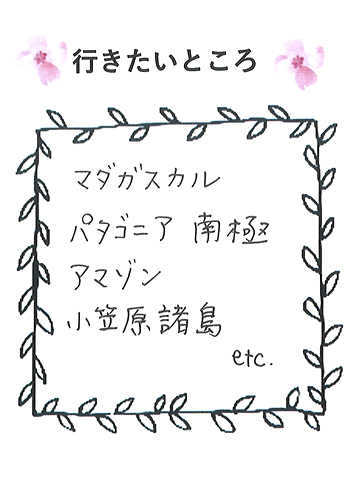 行きたいところ
マダガスカル
パタゴニア 南極
アマゾン
小笠原諸島
etc.